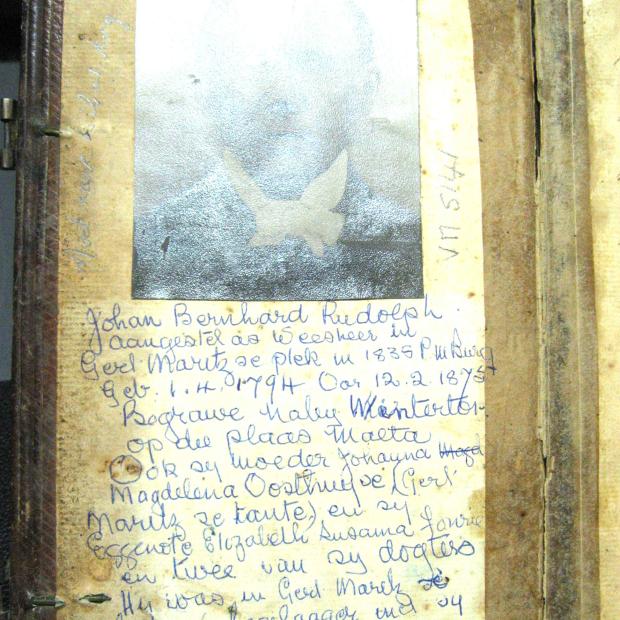 VM 5141
Johan Bernhard Rudolph.
aangestel as Weesheer in
Gert Maritz se plek in 1838 P.M.Burg
Geb. 1.4.1794 Oor 12.2.1875
Begrawe naby Winterton
op die plaas Malta
Ook sy moeder Johanna
Magdelena Oosthuyse (Gert
Maritz se tante) en sy
Eggenote Elizabeth Susanna Fourie
en twee van sy dogters
Hy was in Gert Maritz se
laager met sy